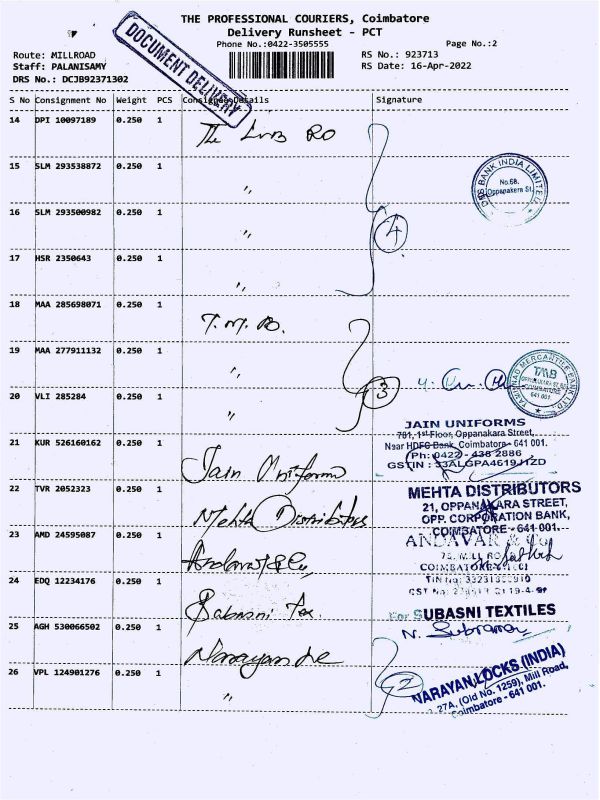 THE PROFESSIONAL COURIERS, Coimbatore
Delivery Runsheet - PCT
Phone No.:0422-3505555
Page No.:2
Route: MILLROAD
Staff: PALANISAMY
DRS No.: DCJB92371302
RS No.: 923713
RS Date: 16-Apr-2022
DOCUMENT DELIVERY
S No Consignment No Weight PCS Consignee Details Signature
14 DPI 10097189 0.250 1 The LVB RO
15 SLM 293538872 0.250 1 "
16 SLM 293500982 0.250 1 "
17 HSR 2350643 0.250 1 "
4
DBS BANK INDIA LIMITED
No.68,
Oppanakera St.
18 MAA 285698071 0.250 1 T.M.B.
19 MAA 277911132 0.250 1 "
20 VLI 285284 0.250 1 "
3
TAMILNAD MERCANTILE BANK LTD.
TMB
COIMBATORE
641 001
21 KUR 526160162 0.250 1 Jain Uniforms
JAIN UNIFORMS
781, 1st Floor, Oppanakara Street,
Near HDFC Bank, Coimbatore - 641 001.
Ph: 0422-438 2886
GSTIN : 33ALGPA4619J1ZD
22 TVR 2052323 0.250 1 Mehta Distributors
MEHTA DISTRIBUTORS
21, OPPANAKARA STREET,
OPP. CORPORATION BANK,
COIMBATORE - 641 001.
23 AMD 24595087 0.250 1 Andavar & Co,
ANDAVAR & Co
75, MILL RO
COIMBATORE
24 EDQ 12234176 0.250 1 Sabasni Tex.
For SUBASNI TEXTILES
25 AGH 530066502 0.250 1 Narayan
26 VPL 124901276 0.250 1 "
2
NARAYAN LOCKS (INDIA)
27A, (Old No. 1259), Mill Road,
Coimbatore - 641 001.